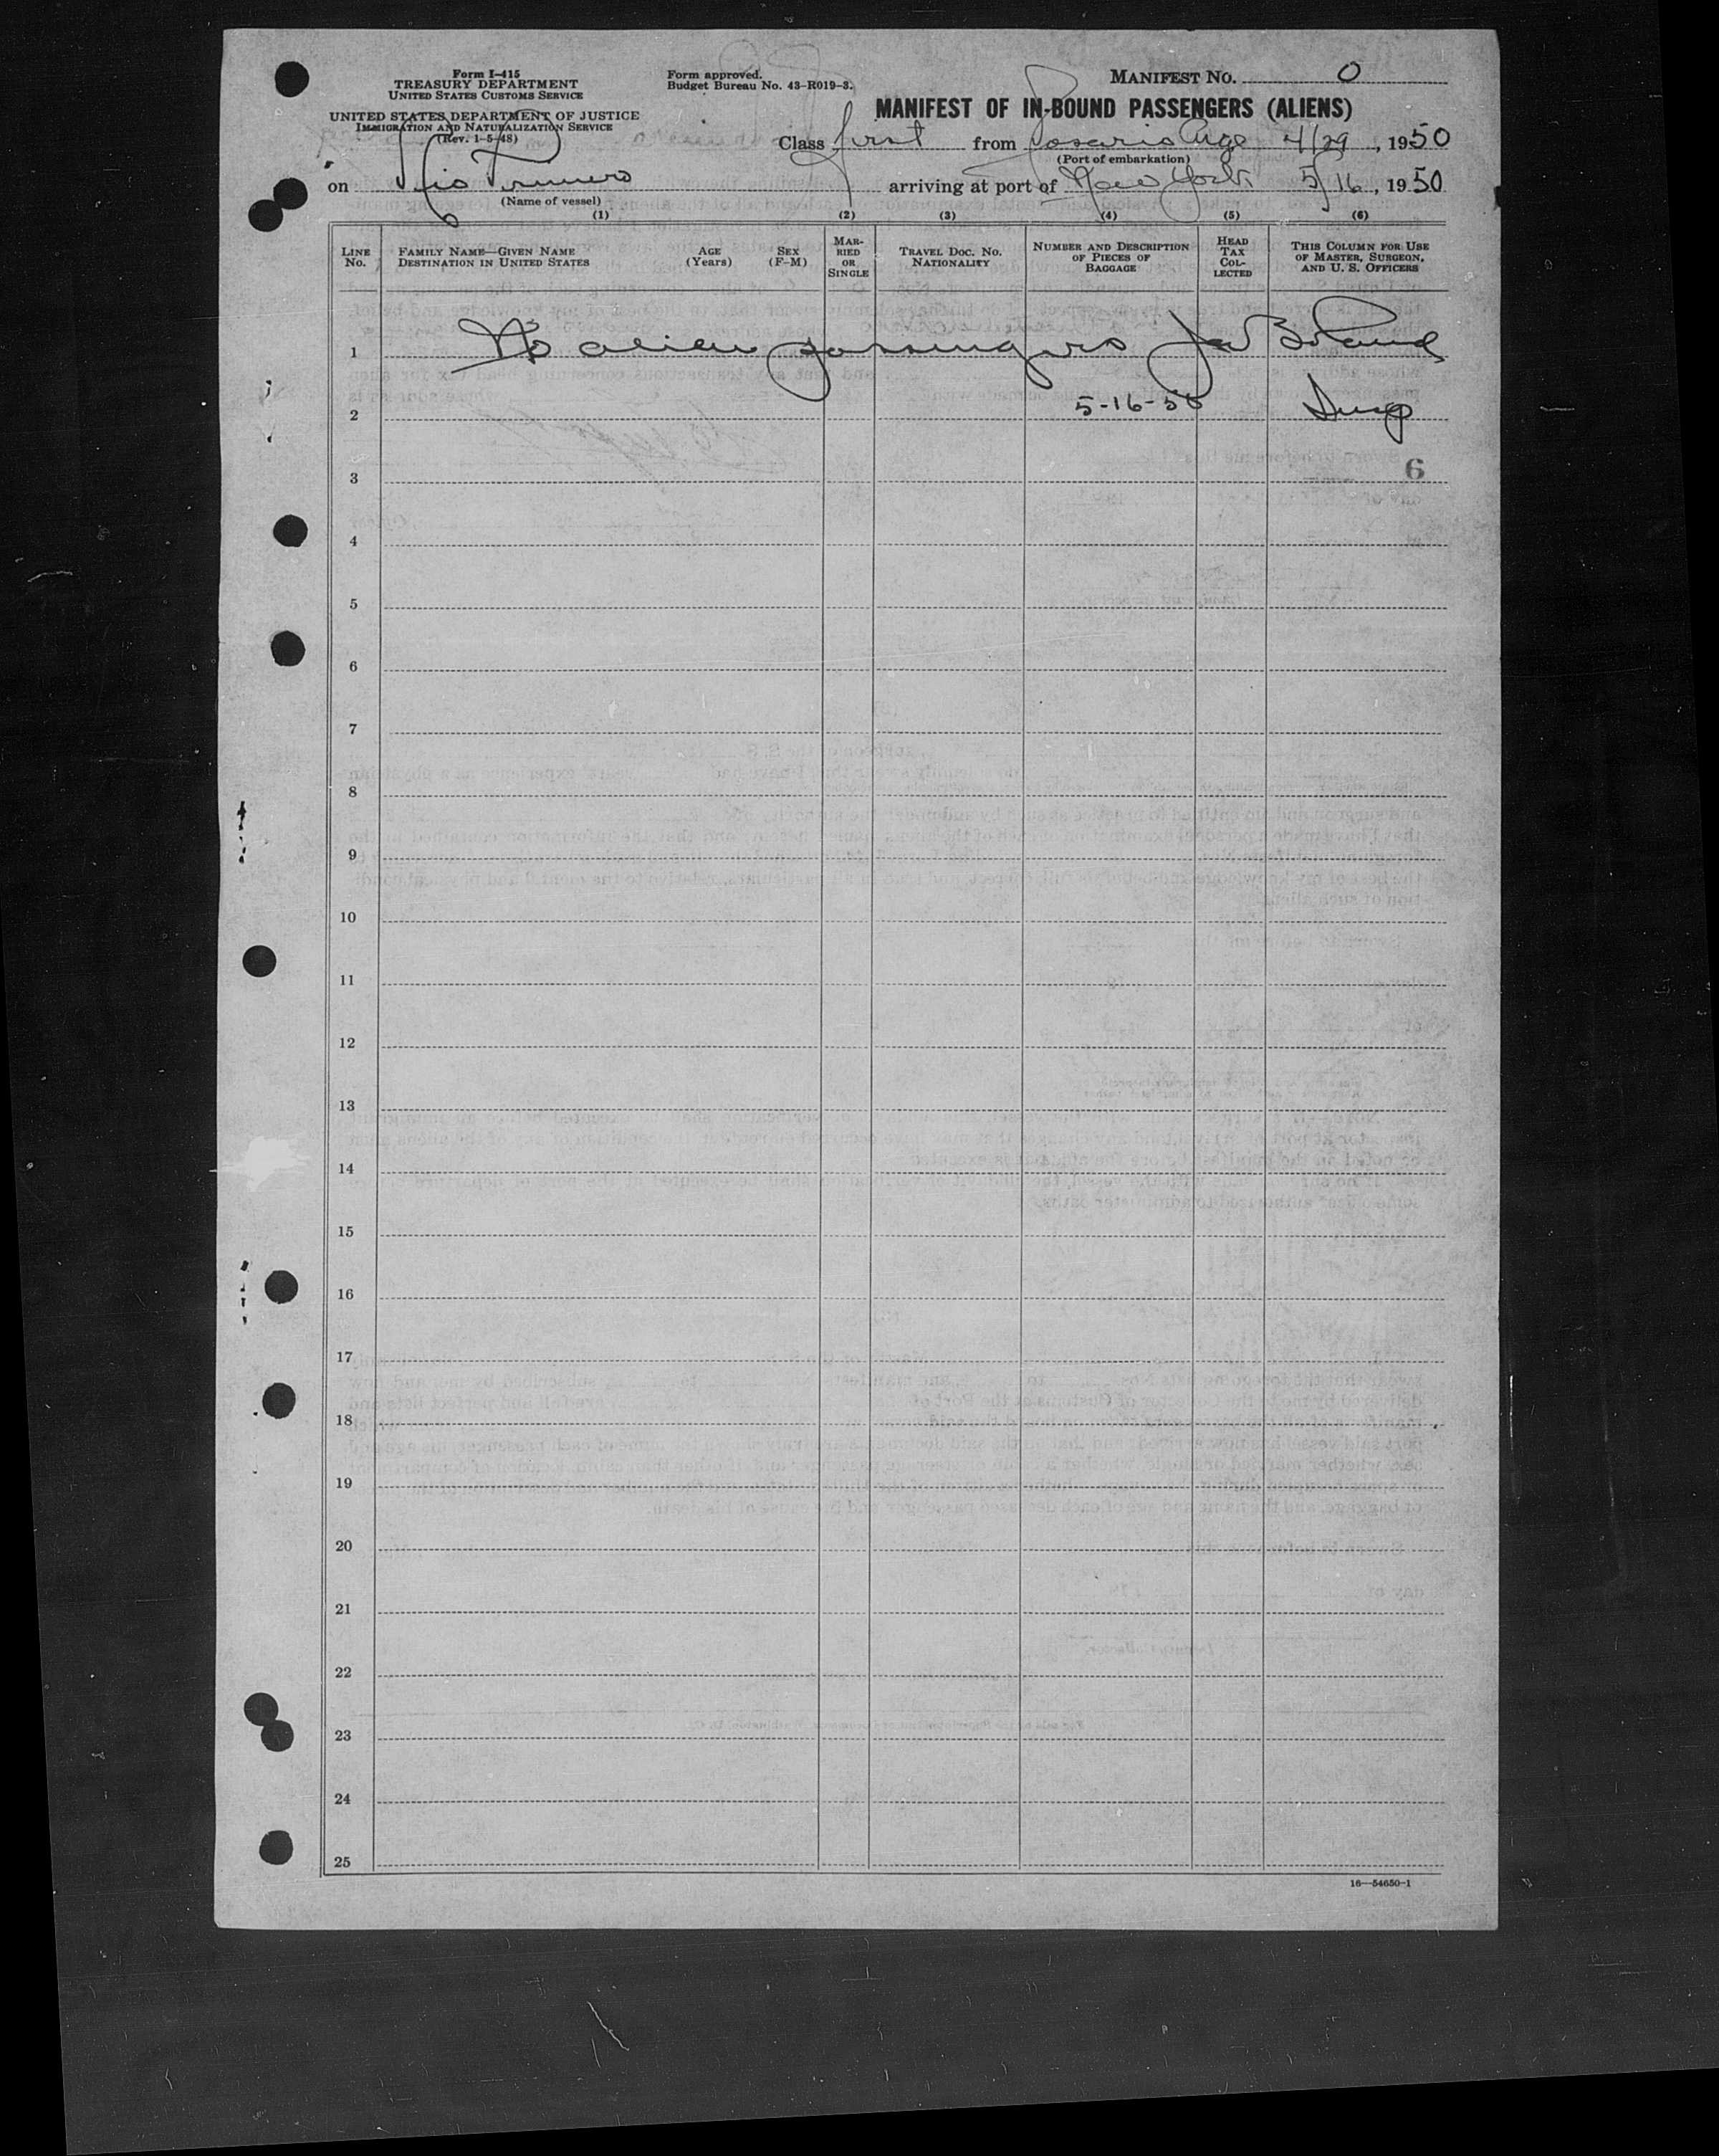 Form I-415
TREASURY DEPARTMENT
UNITED STATES CUSTOMS SERVICE
UNITED STATES DEPARTMENT OF JUSTICE
IMMIGRATION AND NATURALIZATION SERVICE
(Rev. 1-5-48)
Form approved.
Budget Bureau No. 43-R019-3.
MANIFEST NO. 0
MANIFEST OF IN-BOUND PASSENGERS (ALIENS)
Class first from Rosario Arge 4/29, 1950
(Port of embarkation)
on Rio arriving at port of New York 5/16, 1950
(Name of vessel)
(1) (2) (3) (4) (5) (6)
LINE No.
FAMILY NAME—GIVEN NAME
DESTINATION IN UNITED STATES
AGE (Years)
SEX (F-M)
MARRIED OR SINGLE
TRAVEL DOC. NO.
NATIONALITY
NUMBER AND DESCRIPTION OF PIECES OF BAGGAGE
HEAD TAX COLLECTED
THIS COLUMN FOR USE OF MASTER, SURGEON, AND U. S. OFFICERS
1 No alien passengers
2 5-16-50 Insp
6
3
4
5
6
7
8
9
10
11
12
13
14
15
16
17
18
19
20
21
22
23
24
25
16—54650-1